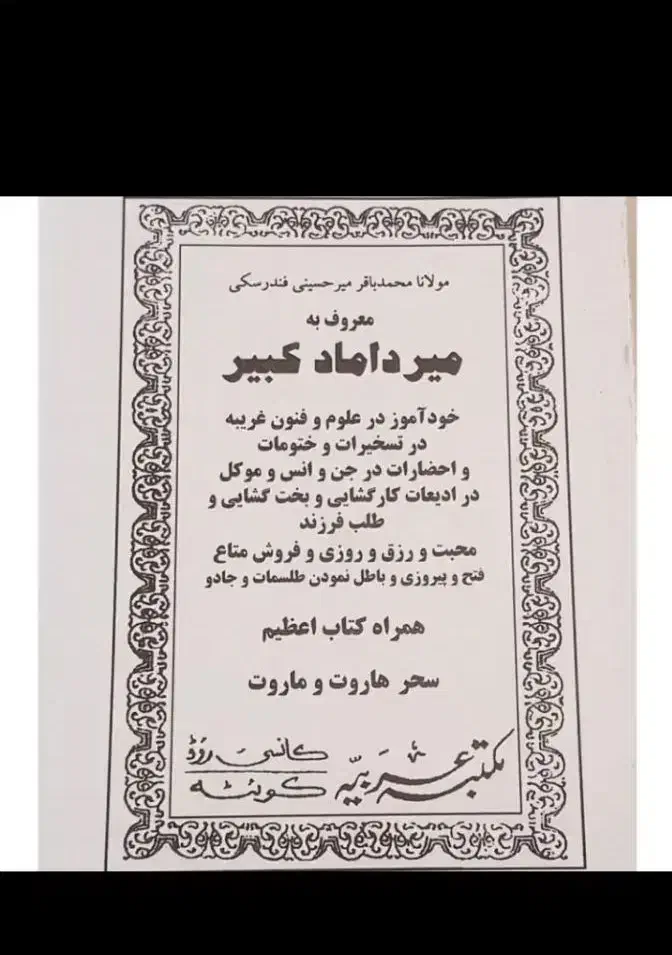 مولانا محمدباقر میرحسینی فندرسکی
معروف به
میرداماد کبیر
خودآموز در علوم و فنون غریبه
در تسخیرات و ختومات
و احضارات در جن و انس و موکل
در ادیعات کارگشایی و بخت گشایی و
طلب فرزند
محبت و رزق و روزی و فروش متاع
فتح و پیروزی و باطل نمودن طلسمات و جادو
همراه کتاب اعظیم
سحر هاروت و ماروت
مکتبہ عربیّہ کانسی روڈ کوئٹہ